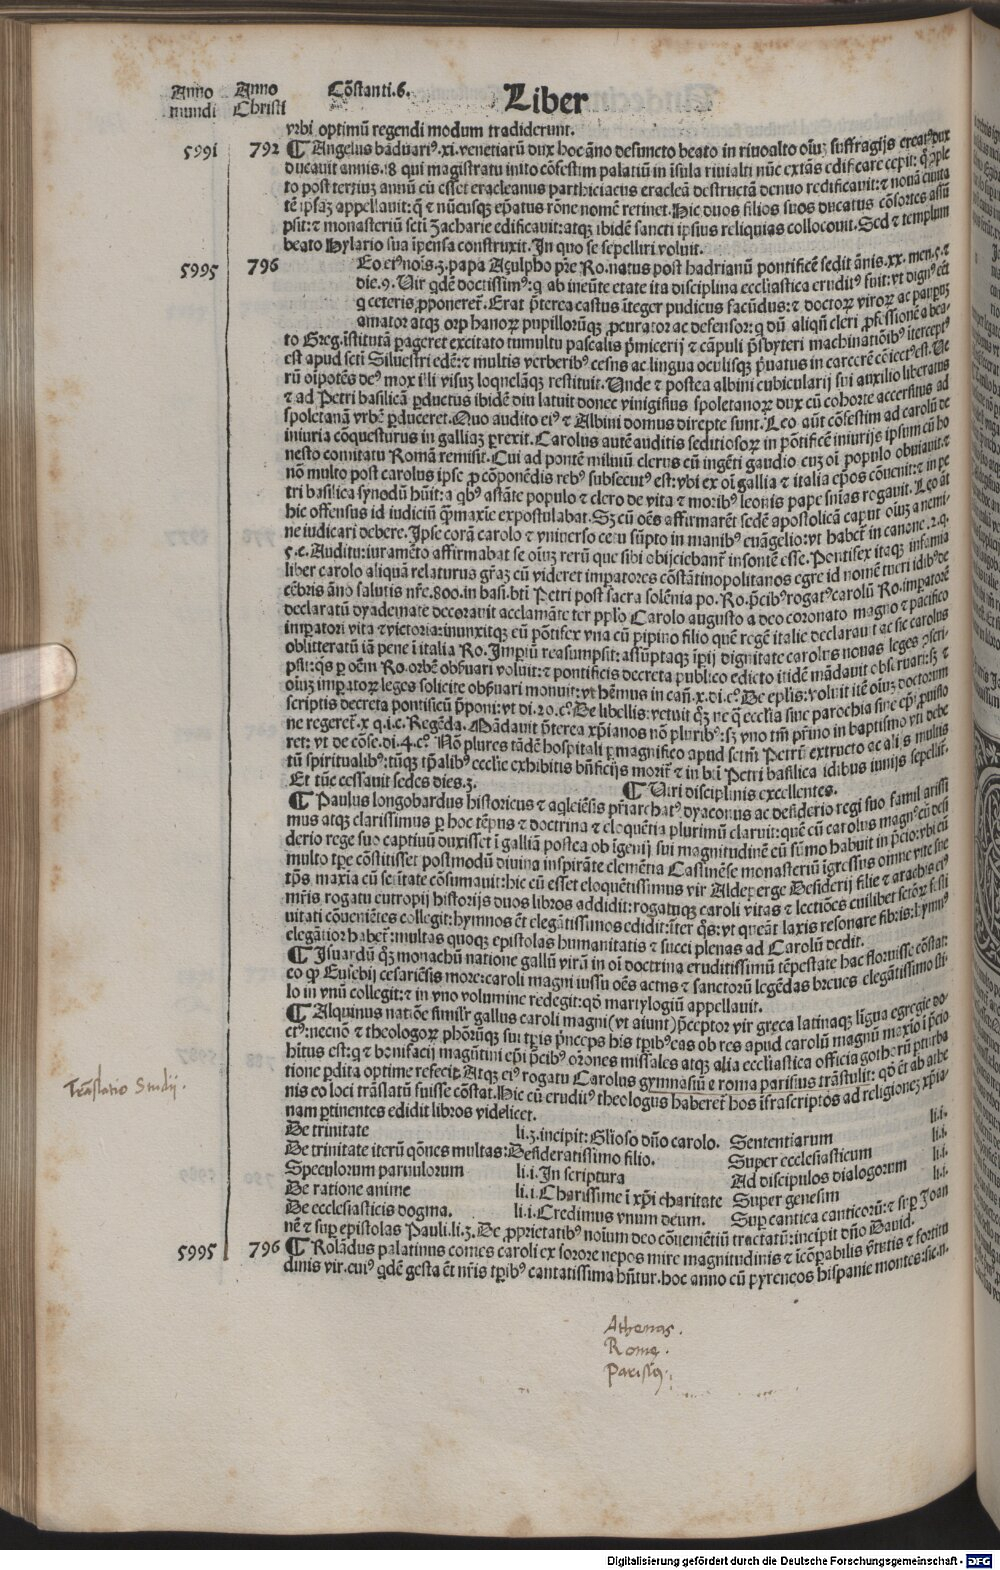 Anno mundi
Anno Christi
Cōstanti.6.
Liber
vrbi optimū regendi modum tradiderunt.
5991 792 ¶ Angelus baduariꝰ.xi.venetiarū dux hoc āno defuncto beato in riuoalto oīuꝫ suffragijs creatꝰ dux
ducauit annis.18 qui magistratu inito cōfestim palatiū in īsula riuialti nūc extās edificare cepit: q̄ ꝓple
to post tertiuꝫ annū cū esset eracleanus parthiciacus eracleā destructā denuo redificauit: ⁊ nouā ciuita
tē ipsaꝫ appellauit: q̄ ⁊ nūcusqꝫ epatus rōne nomē retinet. Hic duos filios suos ducatus cōsortes assū
psit: ⁊ monasteriū scti Zacharie edificauit: atqꝫ ibidē sancti ipsius reliquias collocauit. Sed ⁊ templum
beato Hylario sua īpensa construxit. In quo se sepelliri voluit.
5995 796 Eo eiꝰ noīs.3. papa Açulpho pr̄e Ro. natus post hadrianū pontificē sedit ānis.xx. men.5. ⁊
die.9. Uir qdē doctissimꝰ: q ab ineūte etate ita disciplina ecclīastica eruditꝰ fuit: vt dignꝰ eēt
q ceteris ꝓponeret̄. Erat p̄terea castus īteger pudicus facūdus: ⁊ doctoꝝ viroꝝ ac paupeꝝ
amator atqꝫ orphanoꝝ pupillorūqꝫ ꝓcurator ac defensor: q dū aliqn̄ cleri ꝓfessionē a bea
to Greg. īstitutā ꝑageret excitato tumultu pascalis p̄micerij ⁊ cāpuli p̄sbyteri machinatiōibꝰ īterceptꝰ
est apud scti Siluestri edē: ⁊ multis verberibꝰ cesus ac lingua oculisqꝫ p̄uatus in carcerē cōiectꝰ est. Ve
rū oīpotēs deꝰ mox illi visuꝫ loquelāqꝫ restituit. Unde ⁊ postea albini cubicularij sui auxilio liberatus
⁊ ad Petri basilicā ꝑductus ibidē diu latuit donec vinigisius spoletanoꝝ dux cū cohorte accersitus ad
spoletanā vrbē ꝑduceret. Quo audito eiꝰ ⁊ Albini domus direpte sunt. Leo aūt cōfestim ad carolū de
iniuria cōquesturus in galliaꝫ ꝑrexit. Carolus autē auditis seditiosoꝝ in pōtificē iniurijs ipsum cū ho
nesto comitatu Romā remisit. Cui ad pontē milniū clerus cū ingēti gaudio cuꝫ oī populo obuiauit: ⁊
nō multo post carolus ipse ꝓ cōponēdis rebꝰ subsecutꝰ est: vbi ex oī gallia ⁊ italia ep̄os cōuenit: ⁊ in pe
tri basilica synodū hūit: a qbꝰ astāte populo ⁊ clero de vita ⁊ moribꝰ leonis pape snīas rogauit. Leo āt
hic offensus id iudiciū q̄ꝫmaxīe expostulabat. Sꝫ cū oēs affirmarēt sedē apostolicā caput oīuꝫ a nemi
ne iudicari debere. Ipse corā carolo ⁊ vniuerso cetu sūpto in manibꝰ euāgelio: vt habet̄ in canone.2.q.
5.c. Auditu: iuramēto affirmabat se oīuꝫ rerū que sibi obijciebant̄ insontē esse. Pontifex itaqꝫ infamia
liber carolo aliquā relaturus gr̄aꝫ cū videret impatores cōstātinopolitanos egre id nomē tueri idibꝰ de
cēbris āno salutis nr̄e.800. in basi. bti Petri post sacra solēnia po. Ro. p̄cibꝰ rogatꝰ carolū Ro. imꝑatorē
declaratū dyademate decorauit acclamāte ter pplo Carolo augusto a deo coronato magno ⁊ pacifico
imꝑatori vita ⁊ victoria: inunxitqꝫ eū pōtifex vna cū pipino filio quē regē italie declarauit ac sic carolus
oblitteratū iā pene ī italia Ro. Imꝑiū reasumpsit: assūptaqꝫ īꝑij dignitate carolus nouas leges ↄscri
psit: qs ꝑ oēm Ro. orbē obseruari voluit: ⁊ pontificis decreta publico edicto itidē mādauit obseruari: sꝫ ⁊
oīuꝫ imꝑatoꝝ leges solicite obseruari monuit: vt hēmus in cañ.x.di.cꝰ. De eplis: voluit itē oīuꝫ doctorum
scriptis decreta pontificū p̄poni: vt di.20.cꝰ. De libellis: vetuit qꝫ ne q̄ ecclīa siue parochia sine ep̄i ꝓuisio
ne regeret̄.x q.i.c. Regēda. Mādauit p̄terea xp̄ianos nō pluribꝰ: sꝫ vno tm̄ p̄rino in baptismo vti debe
ret: vt de cōse.di.4.cꝰ. Nō plures tādē hospitali ꝑmagnifico apud sctm̄ Petrū extructo ac alijs multis
tū spiritualibꝰ: tūqꝫ tꝑalibꝰ ecclīe exhibitis bn̄ficijs morit̄ ⁊ in bti Petri basilica idibus iunijs sepellit̄.
Et tūc cessauit sedes dies.3.
¶ Uiri disciplinis excellentes.
¶ Paulus longobardus historicus ⁊ aqleiēsis pr̄iarchatꝰ dyaconus ac desiderio regi suo familiarissi
mus atqꝫ clarissimus ꝑ hoc tēpus ⁊ doctrina ⁊ eloquētia plurimū claruit: quē cū carolus magnꝰ cū desi
derio rege suo captiuū duxisset ī galliā postea ob īgenij sui magnitudinē cū sūmo habuit in p̄cio: vbi cū
multo tꝑe cōstitisset postmodū diuina inspirāte clemētia Cassinēse monasteriū īgressus omne vite sue
tp̄s maxīa cū sc̄itate cōsumauit: hic cū esset eloquētissimus vir Aldeperge Desiderij filie ⁊ arachis eiꝰ
mr̄is rogatu eutropij historijs duos libros addidit: rogatuqꝫ caroli vitas ⁊ lectiōes cuilibet sctoꝝ festi
uitati cōueniētes collegit: hymnos ēt elegātissimos edidit: īter qs: vt queāt laxis resonare fibris: hymnꝰ
elegātior habet̄: multas quoqꝫ epistolas humanitatis ⁊ succi plenas ad Carolū dedit.
¶ Isuardū qꝫ monachū natione gallū virū in oī doctrina eruditissimū tēpestate hac floruisse cōstat:
eo ꝙ Eusebij cesariēsis more: caroli magni iussu oēs actus ⁊ sanctorū legēdas breues elegātissimo sti
lo in vnū collegit: ⁊ in vno volumine redegit: qō martylogiū appellauit.
¶ Alquinus natiōe simil'r gallus caroli magni (vt aiunt) p̄ceptor vir gręca latinaqꝫ līgua egregie do
ctꝰ: necnō ⁊ theologoꝝ phōrūqꝫ sui tꝑis p̄nceps his tꝑibꝰ eas ob res apud carolū magnū maxīo ī p̄cio
hītus est: q ⁊ bonifacij magūtini ep̄i p̄cibꝰ orōnes missales atqꝫ alia ecclīastica officia gothorū ꝑturba
tione ꝑdita optime refecit. Atqꝫ eiꝰ rogatu Carolus gymnasiū e roma parisius trāstulit: qō ēt ab athe
nis eo loci trāslatū fuisse cōstat. Hic cū eruditꝰ theologus haberet̄ hos īfrascriptos ad religioneꝫ xp̄ia
nam ꝑtinentes edidit libros videlicet.
De trinitate li.3. incipit: Glīoso dn̄o carolo. Sententiarum li.i.
De trinitate iterū qōnes multas: Desideratissimo filio. Super ecclesiasticum li.i.
Speculorum paruulorum li.i. In scriptura Ad discipulos dialogorum li.i.
De ratione anime li.i. Charissime ī xp̄i charitate Super genesim li.i.
De ecclesiasticis dogma. li.i. Credimus vnum deum. Suꝑ cantica canticorū: ⁊ suꝑ Joan
nē ⁊ suꝑ epistolas Pauli.li.3. De ꝓprietatibꝰ noīum deo cōueniētiū tractatū: incipit dn̄o Dauid.
5995 796 ¶ Rolādus palatinus comes caroli ex sorore nepos mire magnitudinis ⁊ īcōꝑabilis ꝟtutis ⁊ fortitu
dinis vir. cuiꝰ qdē gesta ēt nr̄is tꝑibꝰ cantatissima hn̄tur. hoc anno cū pyreneos hispanie montes.sic.n.
Trāslatio Studij.
Athenas.
Rome.
Parisiꝰ.
Digitalisierung gefördert durch die Deutsche Forschungsgemeinschaft - DFG